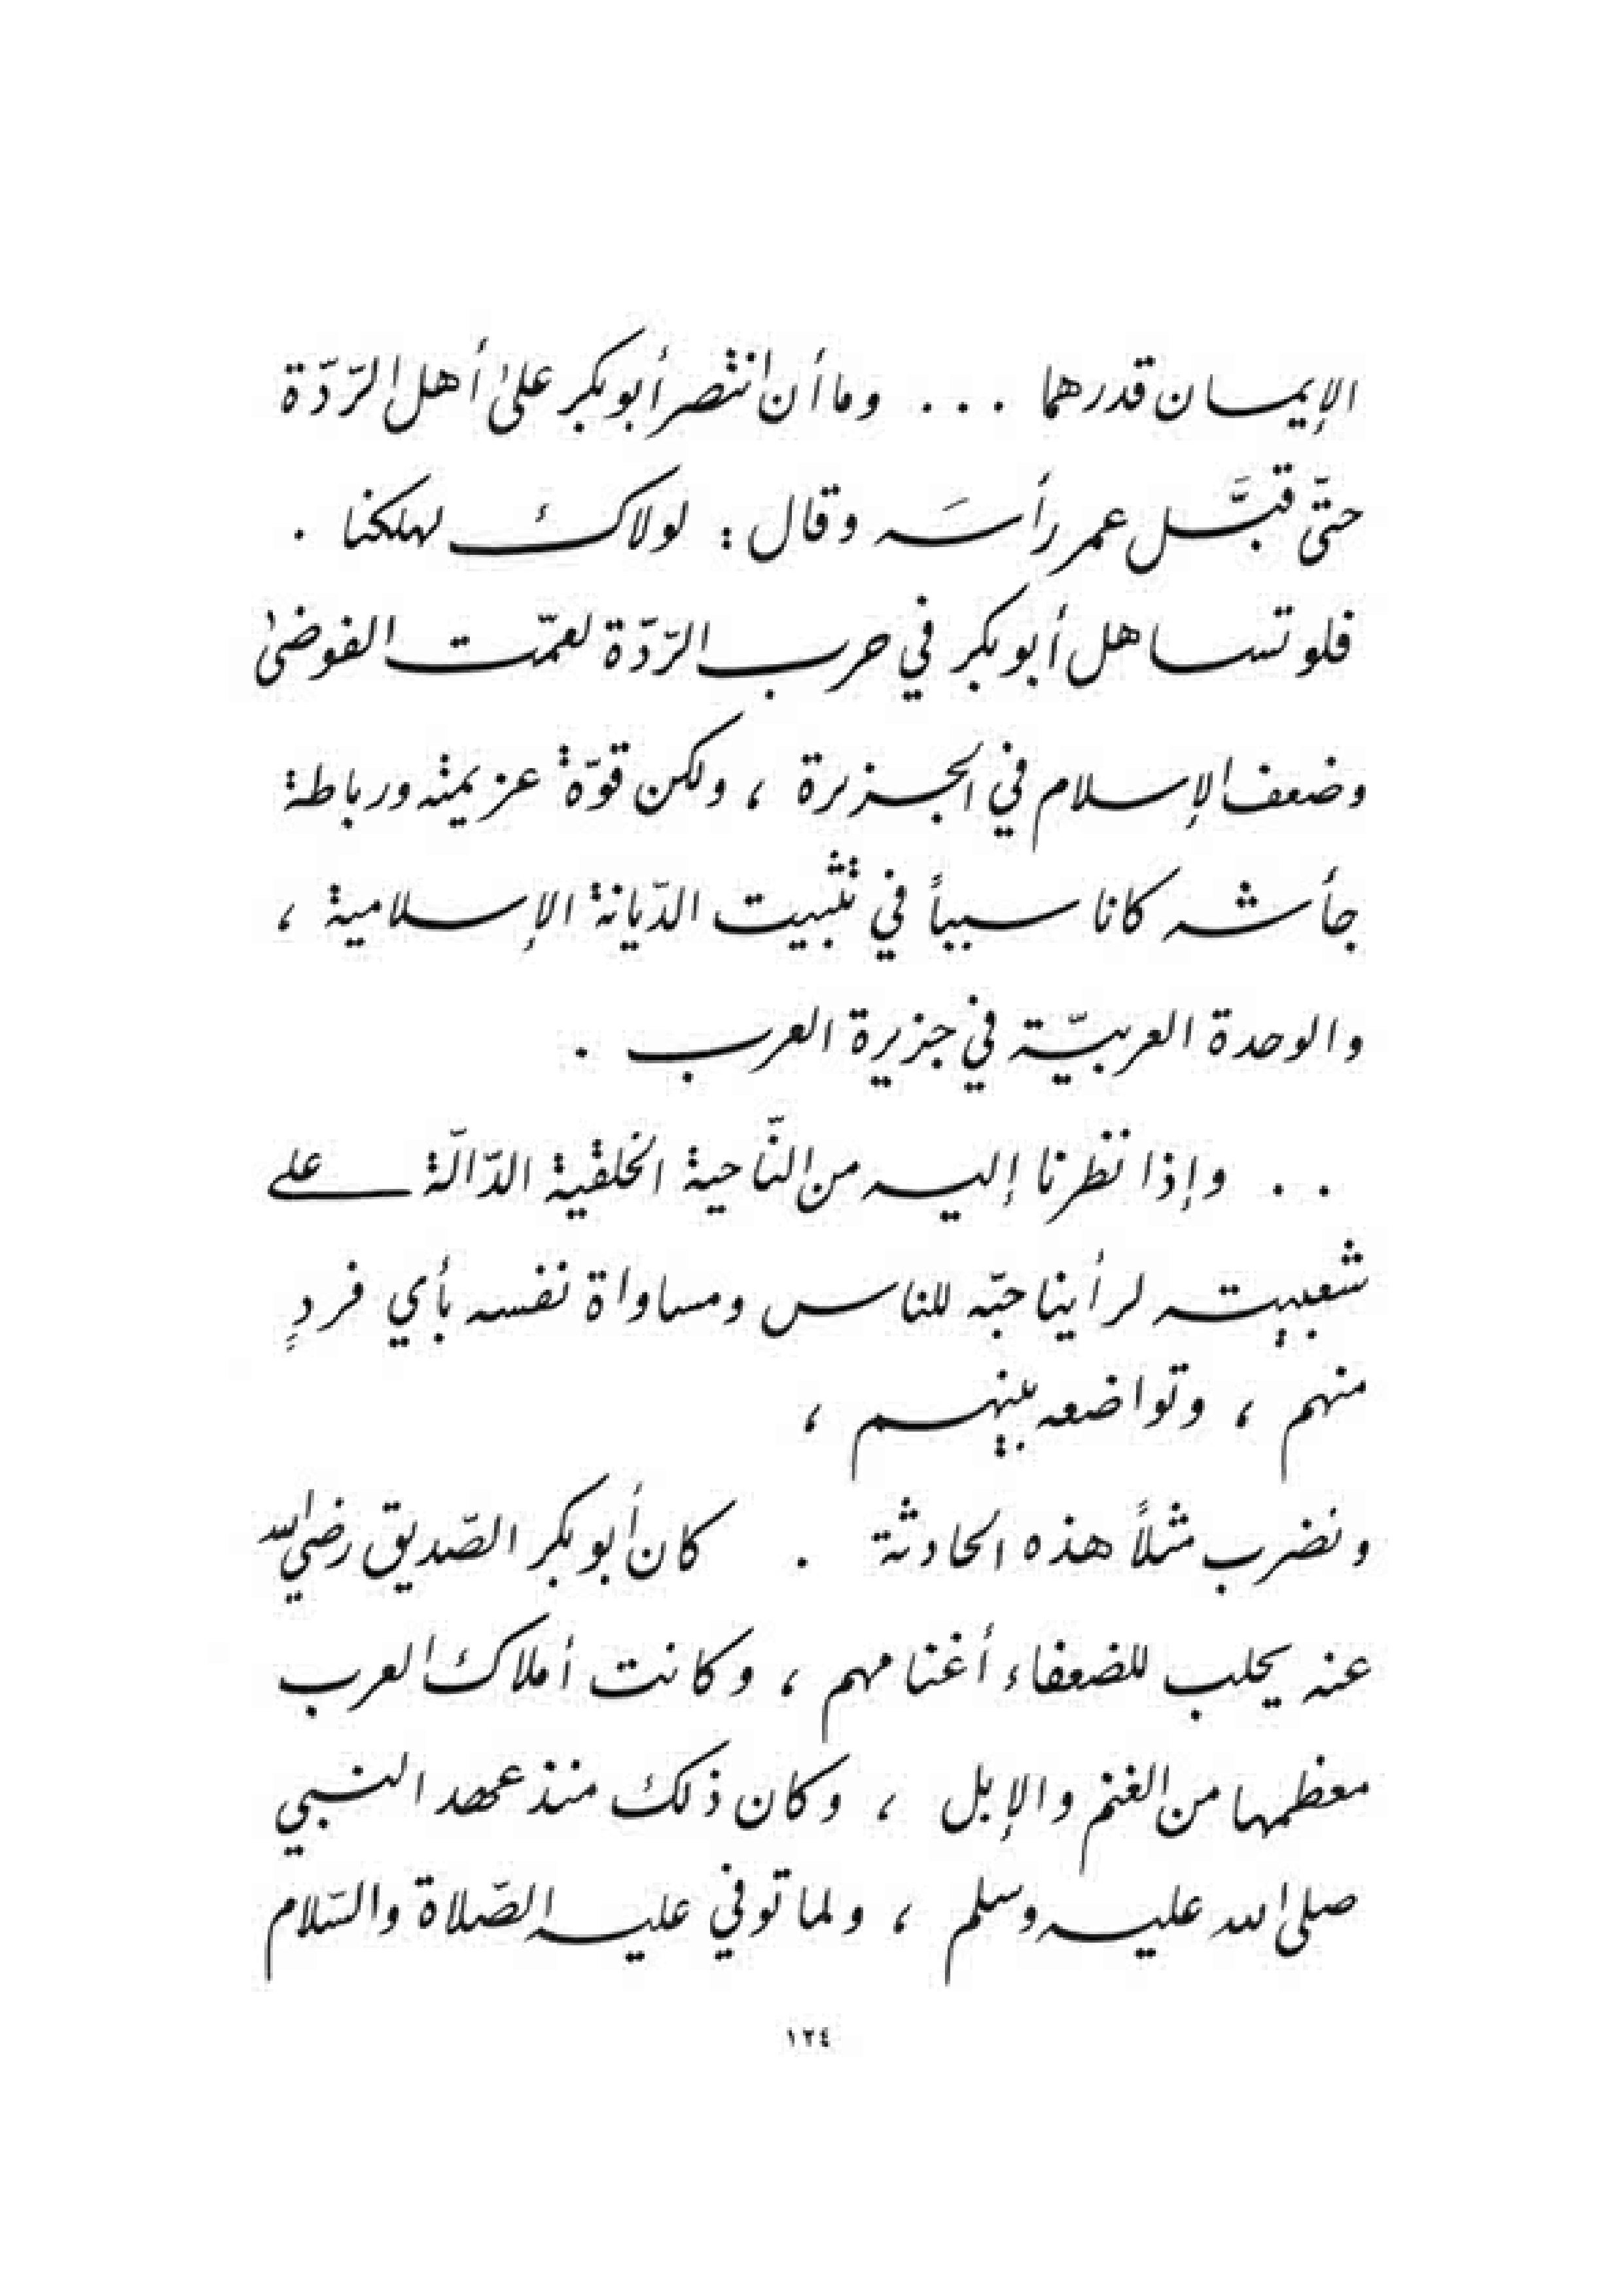 الإيمان قدرهما ... وما أن انتصر أبو بكر على أهل الرّدّة
حتّى قبَّل عمر رأسَه وقال : لولاك لهلكنا .
فلو تساهل أبو بكر في حرب الرّدّة لعمّت الفوضى
وضعف الإسلام في الجزيرة ، ولكن قوّة عزيمته ورباطة
جأشه كانا سبباً في تثبيت الدّيانة الإسلامية ،
والوحدة العربيّة في جزيرة العرب .
.. وإذا نظرنا إليه من النّاحية الخلقية الدّالّة على
شعبيته لرأينا حبّه للناس ومساواة نفسه بأي فردٍ
منهم ، وتواضعه بينهم ،
ونضرب مثلاً هذه الحادثة . كان أبو بكر الصّديق رضي الله
عنه يحلب للضعفاء أغنامهم ، وكانت أملاك العرب
معظمها من الغنم والإبل ، وكان ذلك منذ عهد النبي
صلى الله عليه وسلم ، ولما توفي عليه الصّلاة والسّلام
١٢٤